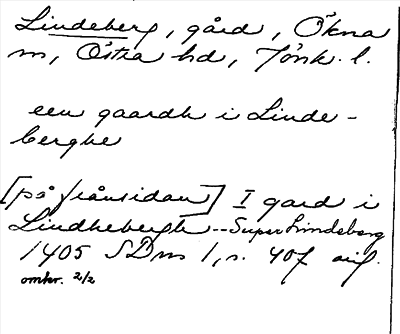 Lindeberg, gård, Ökna
sn, Östra hd, Jönk. l.
een gaardh i Linde-
berghe
[på frånsidan] I gard i
Lindhebergh -- Super Lindeberg
1405 SDns 1, s. 407 orig.
omkr. 2/2